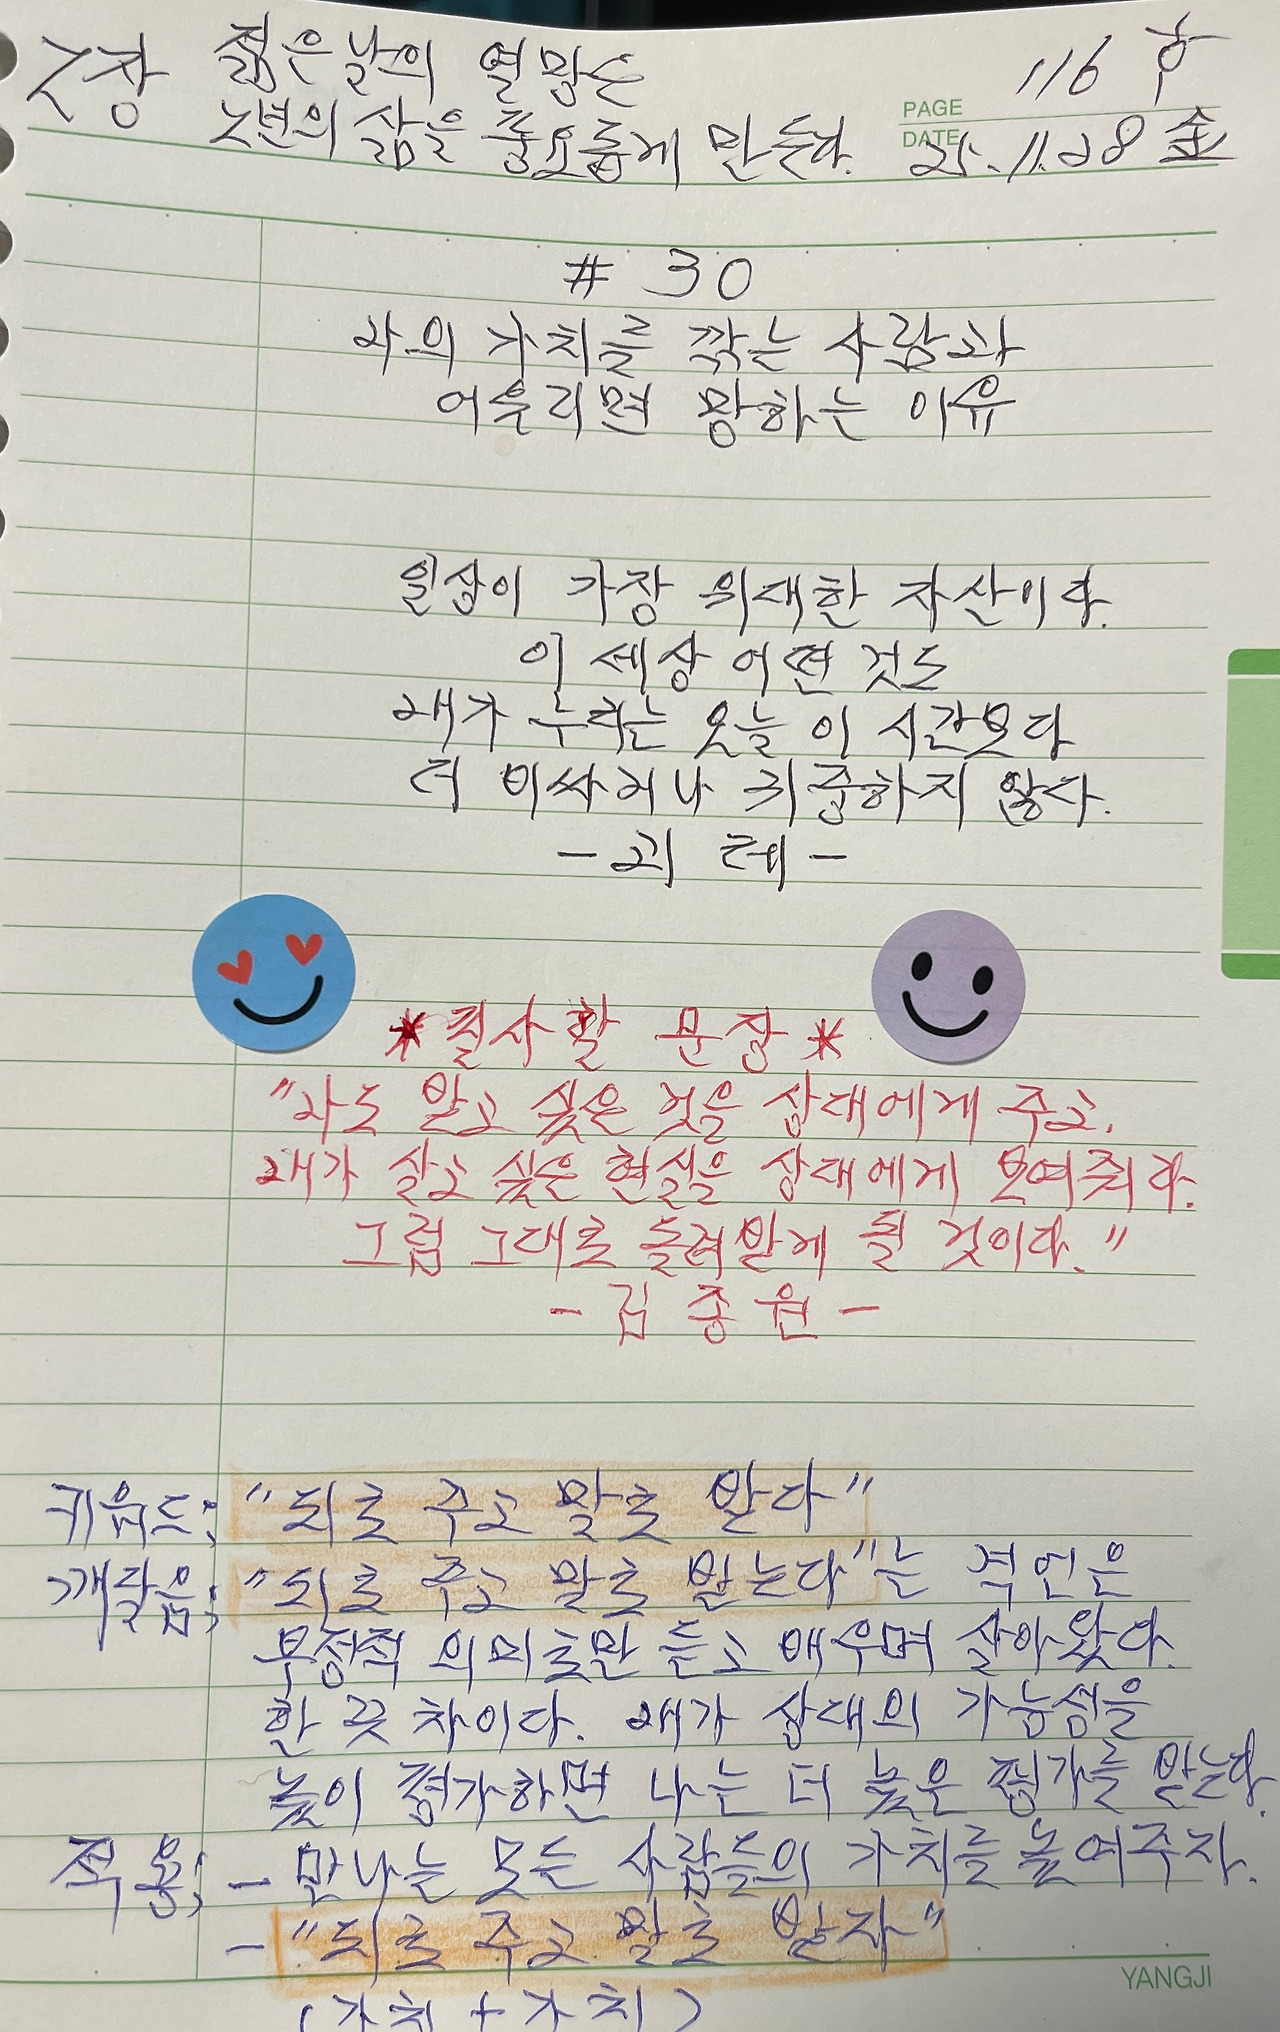 2장 젊은날의 열망은 116 方
노년의 삶을 풍요롭게 만든다.
PAGE
DATE 25.11.28 金
# 30
나의 가치를 깎는 사람과
어울리면 망하는 이유
일상이 가장 위대한 자산이다.
이 세상 어떤 것도
내가 누리는 오늘 이 시간보다
더 비싸거나 귀중하지 않다.
-괴테-
*필사할 문장*
"나도 받고 싶은 것을 상대에게 주고,
내가 살고 싶은 현실을 상대에게 보여줘라.
그럼 그대로 돌려받게 될 것이다."
-김종원-
키워드; "되로 주고 말로 받다"
깨달음; "되로 주고 말로 받는다"는 격언은
부정적 의미로만 듣고 배우며 살아왔다.
한 끗 차이다. 내가 상대의 가능성을
높이 평가하면 나는 더 높은 평가를 받는다.
적용; - 만나는 모든 사람들의 가치를 높여주자.
- "되로 주고 말로 받자"
(가치 + 가치)
YANGJI